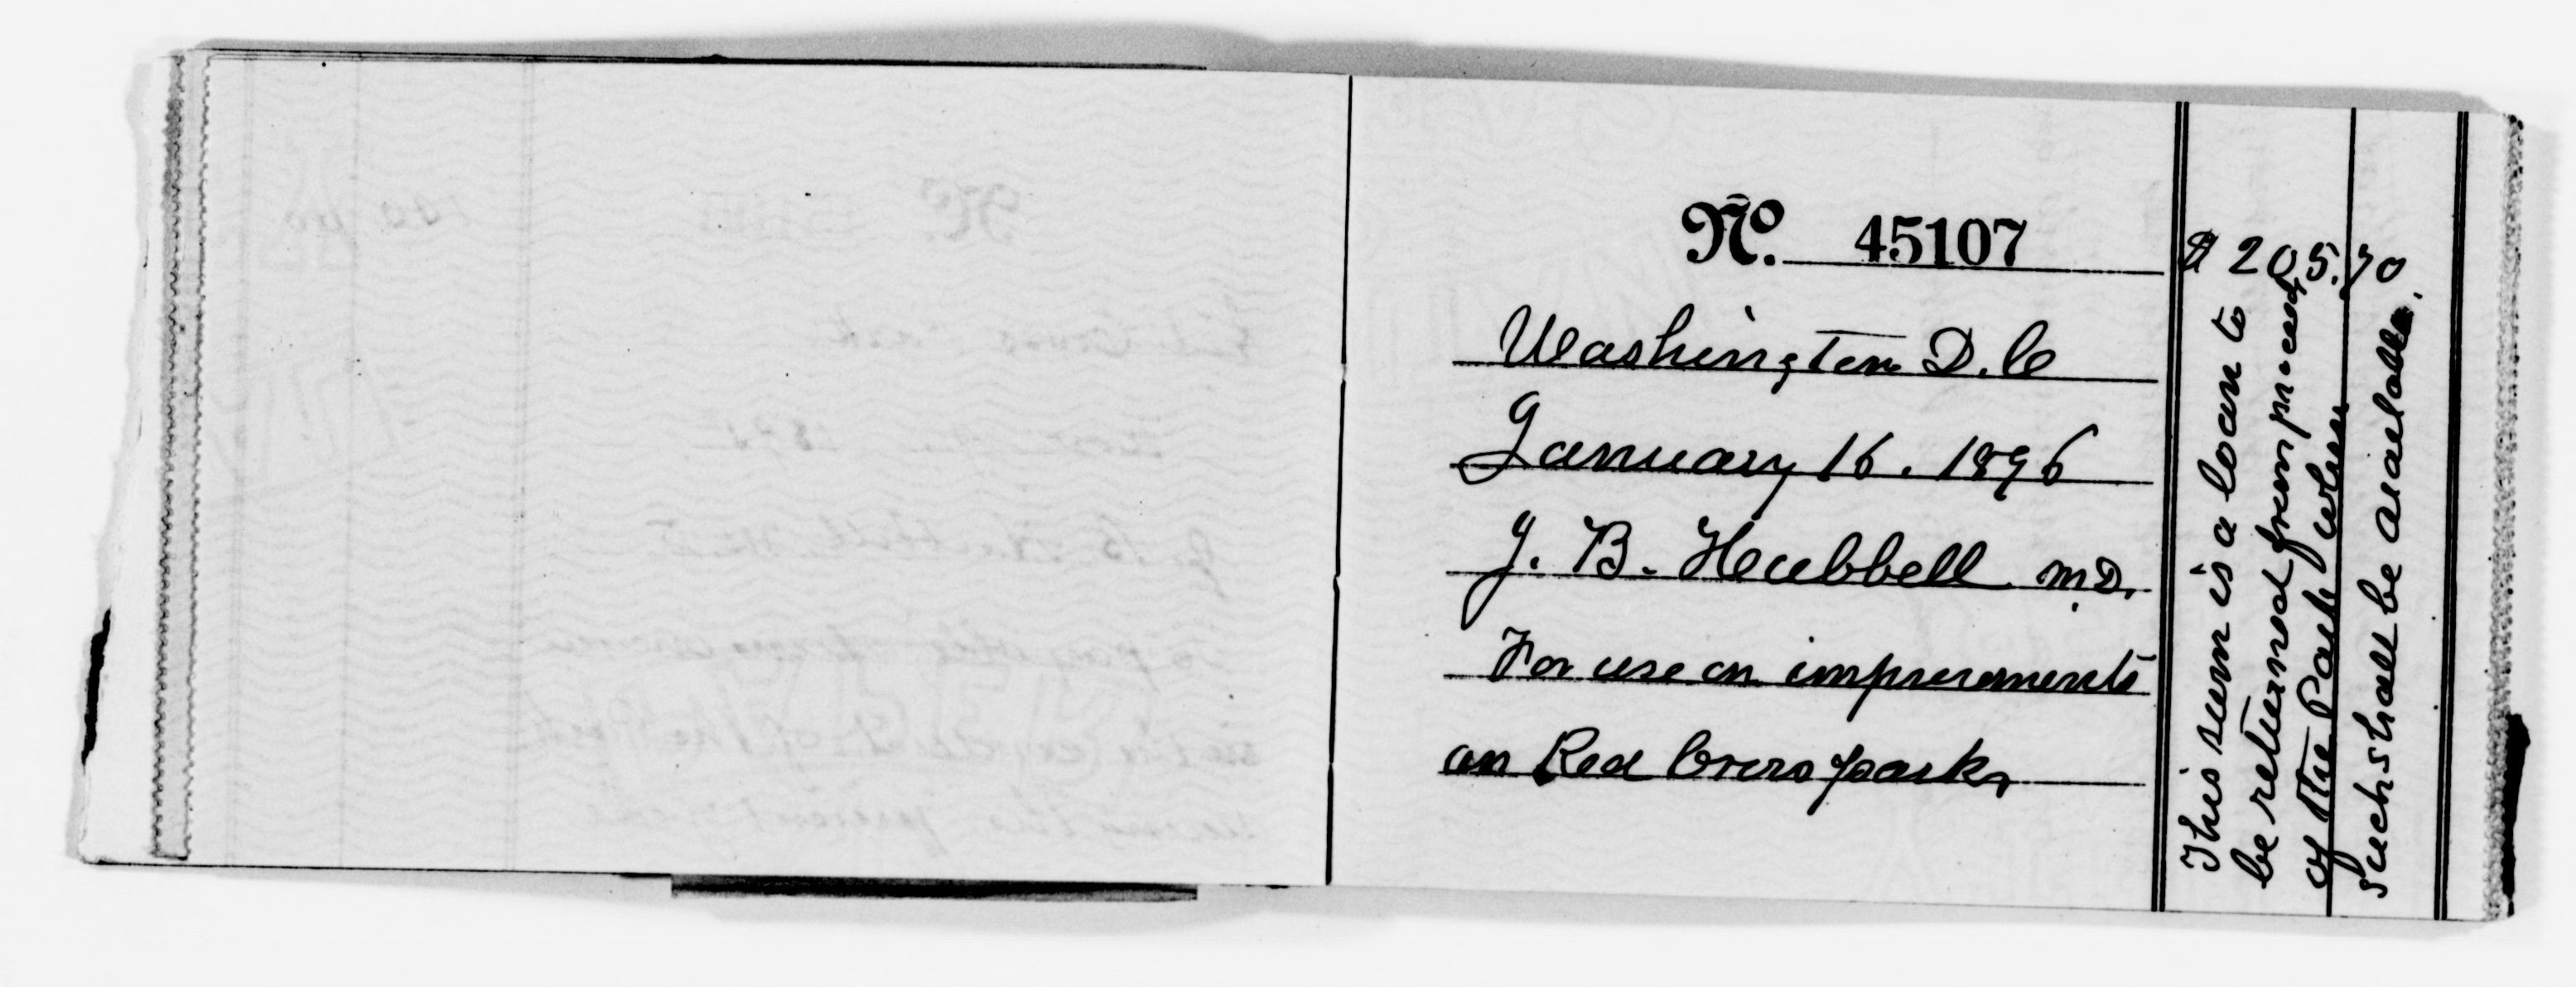 No. 45107
$ 205.70
Washington D.C
January 16. 1896
J. B. Hubbell M.D.
For use on improvements
on Red Cross park,
This sum is a loan to
be returned from proceeds
of the Park when
such shall be available.